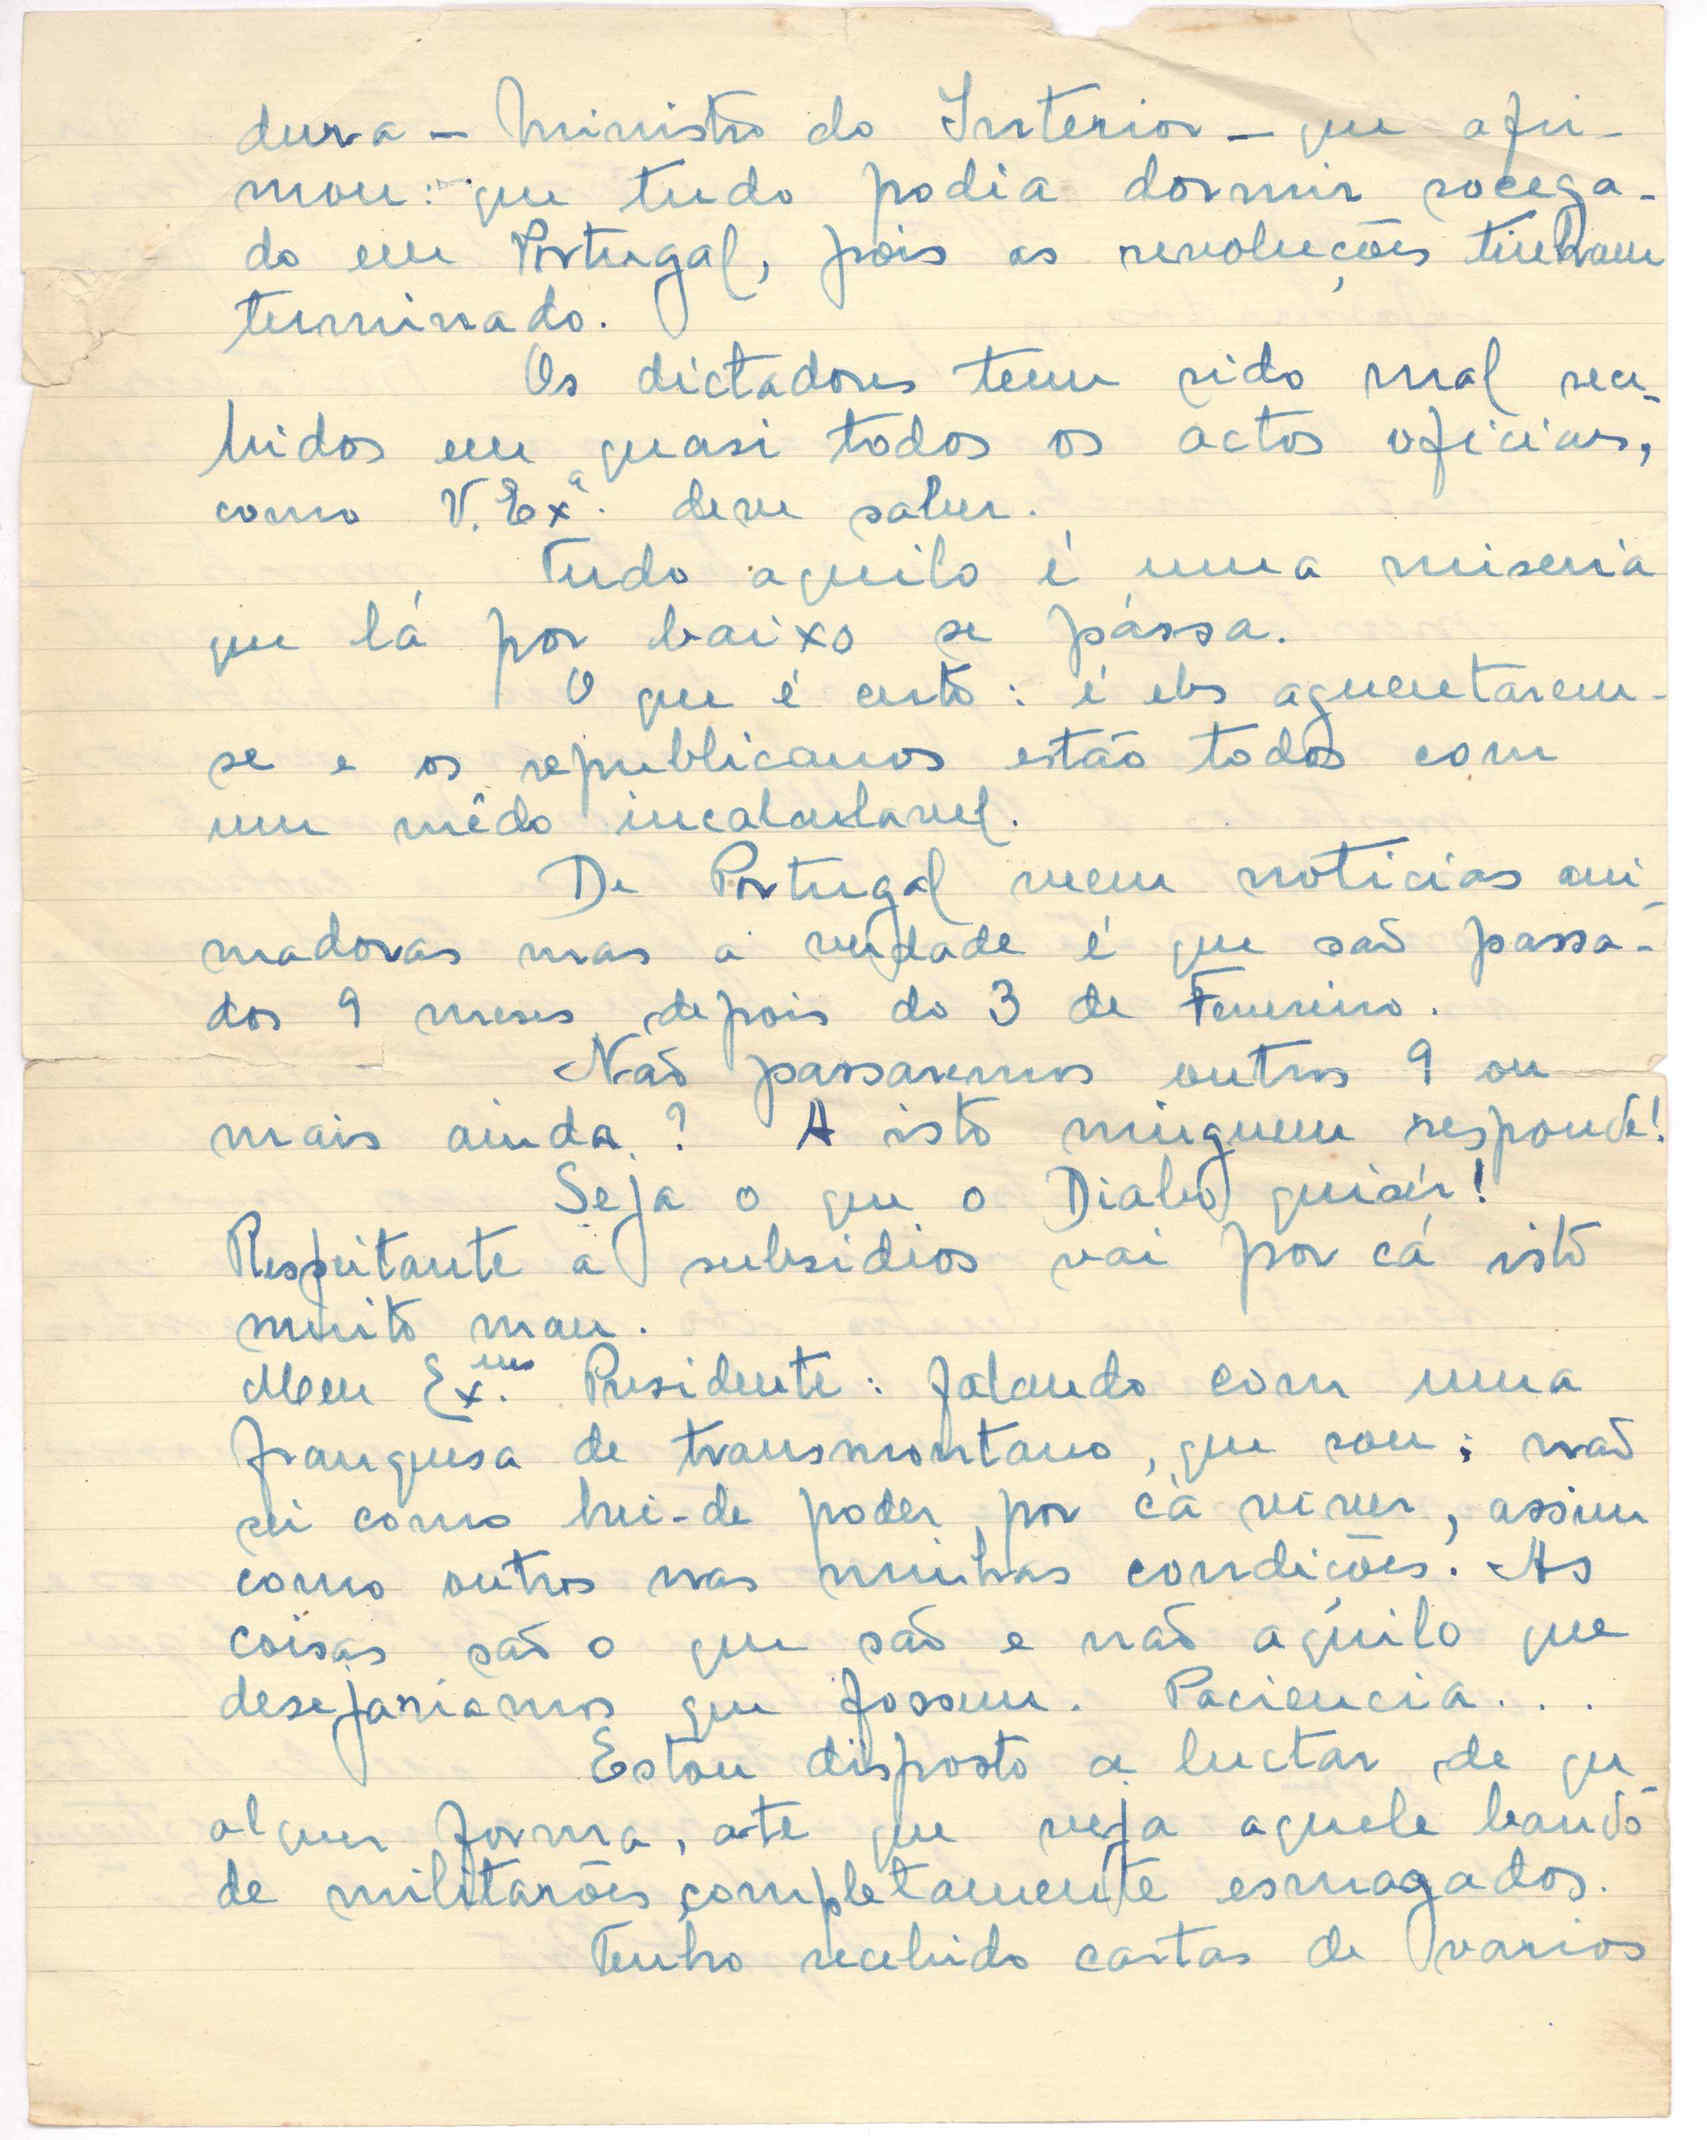 dura – Ministro do Interior – que afir-
mou: que tudo podia dormir socega-
do em Portugal, pois as revoluções tinham
terminado.
Os dictadores teem sido mal rece-
bidos em quasi todos os actos oficiaes,
como V. Exª. deve saber.
Tudo aquilo é uma miseria
que lá por baixo se pássa.
O que é certo: é eles aguentarem-
se e os republicanos estão todos com
um mêdo incalculavel.
De Portugal veem noticias ani-
madoras mas a verdade é que são passa-
dos 9 meses depois do 3 de Fevereiro.
Não passaremos outros 9 ou
mais ainda? A isto ninguem responde!
Seja o que o Diabo quisér!
Respeitante a subsidios vai por cá isto
muito mau.
Meu Ex.mo Presidente: falando com uma
franquesa de transmontano, que sou; não
sei como hei-de poder por cá viver, assim
como outros nas minhas condições. As
coisas são o que são e não aquilo que
desejariamos que fossem. Paciencia...
Estou disposto a luctar de qu-
alquer forma, até que veja aquele bando
de militarões completamente esmagados.
Tenho recebido cartas de varios